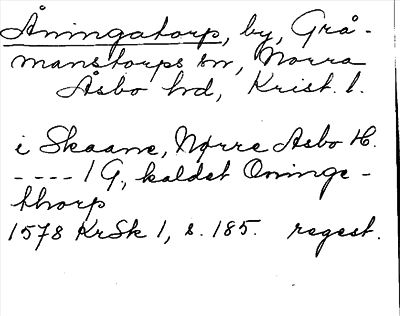 Åningatorp, by, Grå-
manstorps sn, Norra
Åsbo hd, Krist. l.
i Skaane, Nørre Asbo H.
---- 1 G, kaldet Oninge-
thorp
1578 KrSk 1, s. 185. regest.